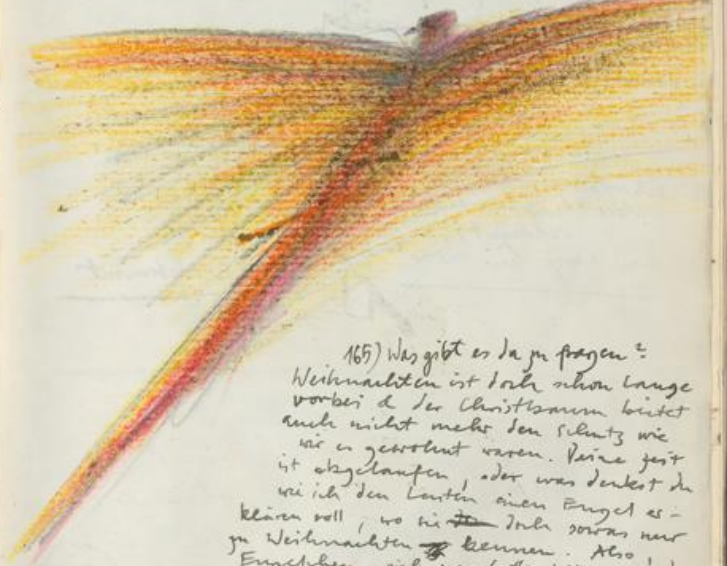 165) Was gibt es da zu fragen?
Weihnachten ist doch schon lange
vorbei & der Christbaum bietet
auch nicht mehr den Schutz wie
wir es gewohnt waren. Deine Zeit
ist abgelaufen, oder was denkst du
wie ich den Leuten einen Engel er-
klären soll, wo sie doch sowas nur
zu Weihnachten kennen. Also